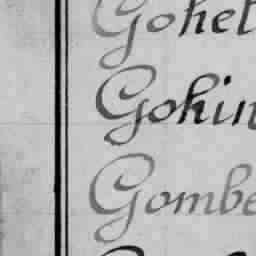 Gohel
Gohin
Gombe